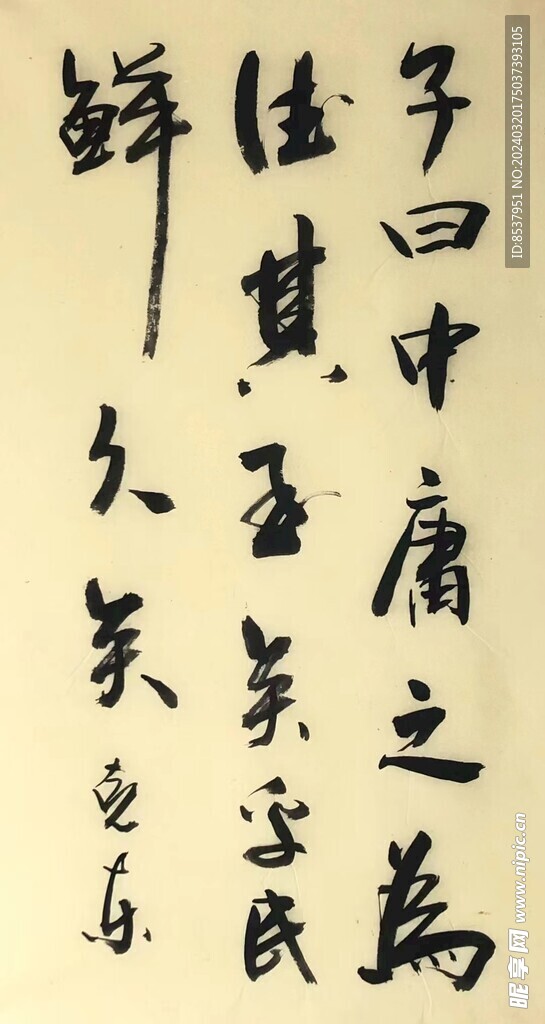 子曰中庸之為
德其至矣乎民
鲜久矣
克东
ID:8537951 NO:20240320175037393105
昵享网 www.nipic.cn